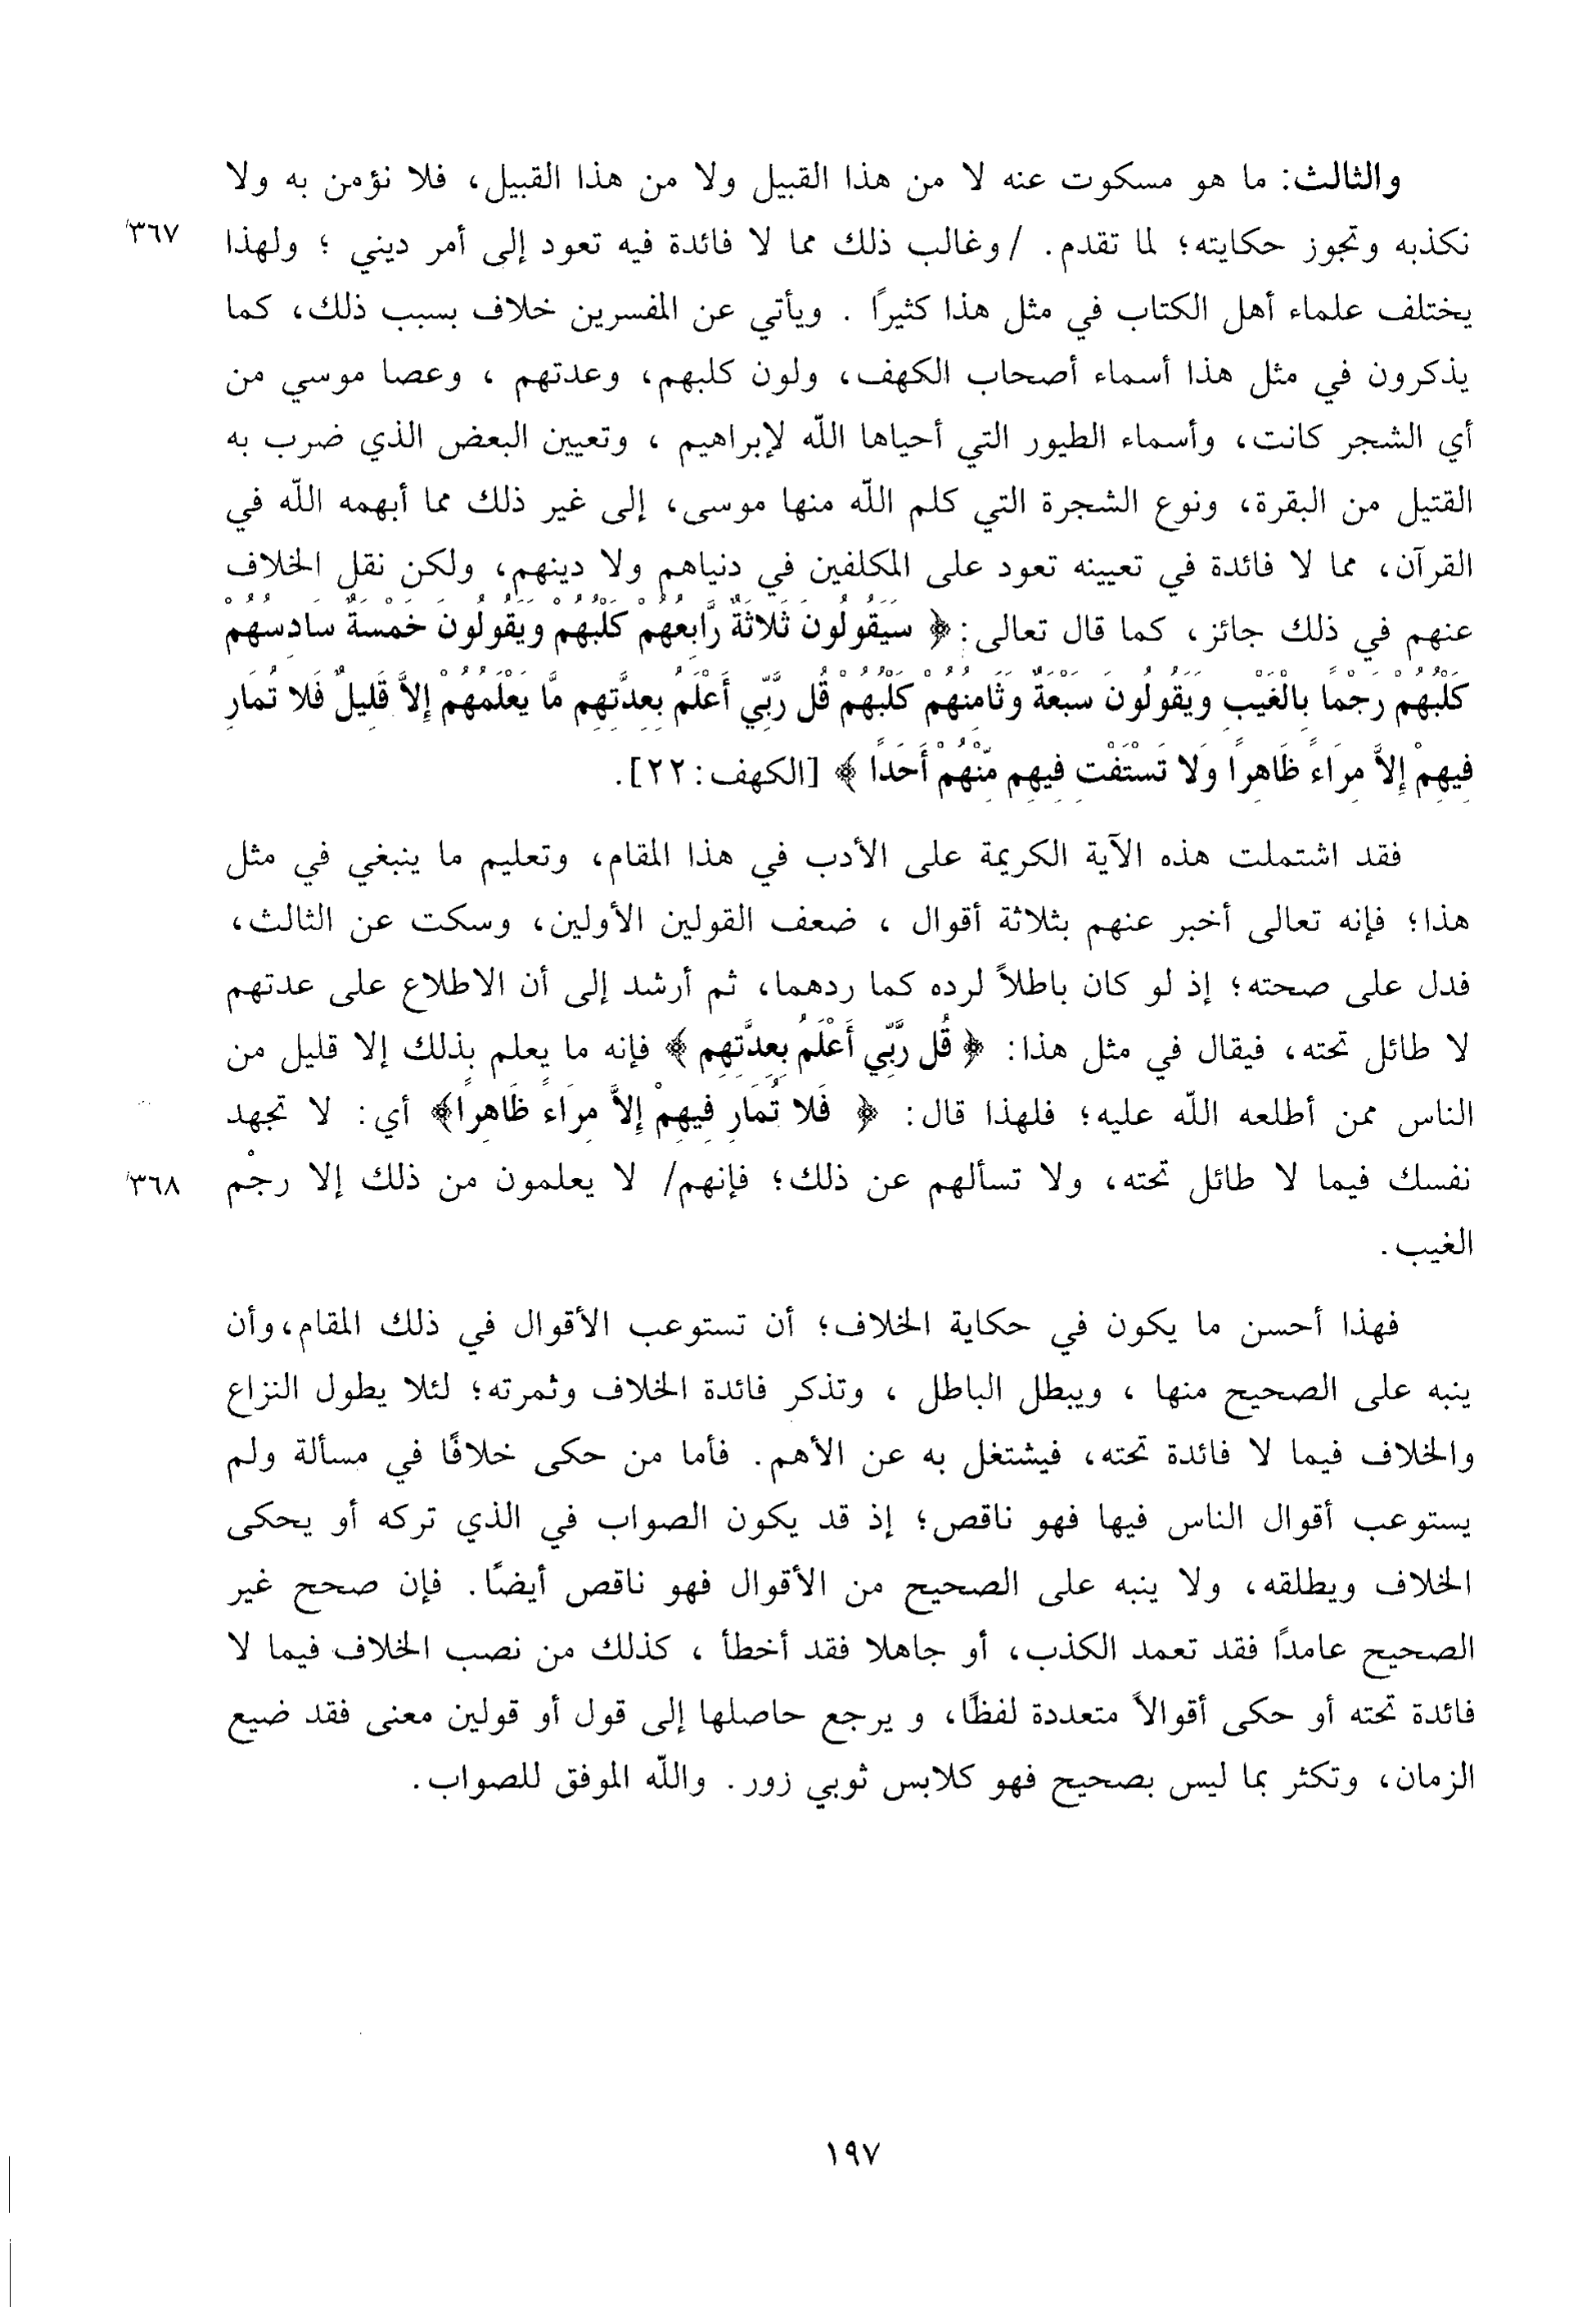 والثالث: ما هو مسكوت عنه لا من هذا القبيل ولا من هذا القبيل، فلا نؤمن به ولا
نكذبه وتجوز حكايته؛ لما تقدم. /وغالب ذلك مما لا فائدة فيه تعود إلى أمر ديني ؛ ولهذا
٣٦٧/
يختلف علماء أهل الكتاب في مثل هذا كثيرًا . ويأتي عن المفسرين خلاف بسبب ذلك، كما
يذكرون في مثل هذا أسماء أصحاب الكهف، ولون كلبهم، وعدتهم ، وعصا موسي من
أي الشجر كانت، وأسماء الطيور التي أحياها اللّه لإبراهيم ، وتعيين البعض الذي ضرب به
القتيل من البقرة، ونوع الشجرة التي كلم اللّه منها موسى، إلى غير ذلك مما أبهمه اللّه في
القرآن، مما لا فائدة في تعيينه تعود على المكلفين في دنياهم ولا دينهم، ولكن نقل الخلاف
عنهم في ذلك جائز، كما قال تعالى: ﴿ سَيَقُولُونَ ثَلاثَةٌ رَّابِعُهُمْ كَلْبُهُمْ وَيَقُولُونَ خَمْسَةٌ سَادِسُهُمْ
كَلْبُهُمْ رَجْمًا بِالْغَيْبِ وَيَقُولُونَ سَبْعَةٌ وَثَامِنُهُمْ كَلْبُهُمْ قُل رَّبِّي أَعْلَمُ بِعِدَّتِهِم مَّا يَعْلَمُهُمْ إِلاَّ قَلِيلٌ فَلا تُمَارِ
فِيهِمْ إِلاَّ مِرَاءً ظَاهِرًا وَلا تَسْتَفْتِ فِيهِم مِّنْهُمْ أَحَدًا ﴾ [الكهف: ٢٢].
فقد اشتملت هذه الآية الكريمة على الأدب في هذا المقام، وتعليم ما ينبغي في مثل
هذا؛ فإنه تعالى أخبر عنهم بثلاثة أقوال ، ضعف القولين الأولين، وسكت عن الثالث،
فدل على صحته؛ إذ لو كان باطلاً لرده كما ردهما، ثم أرشد إلى أن الاطلاع على عدتهم
لا طائل تحته، فيقال في مثل هذا: ﴿ قُل رَّبِّي أَعْلَمُ بِعِدَّتِهِم ﴾ فإنه ما يعلم بذلك إلا قليل من
الناس ممن أطلعه اللّه عليه؛ فلهذا قال: ﴿ فَلا تُمَارِ فِيهِمْ إِلاَّ مِرَاءً ظَاهِرًا﴾ أي: لا تجهد
نفسك فيما لا طائل تحته، ولا تسألهم عن ذلك؛ فإنهم/ لا يعلمون من ذلك إلا رجْم
٣٦٨/
الغيب.
فهذا أحسن ما يكون في حكاية الخلاف؛ أن تستوعب الأقوال في ذلك المقام، وأن
ينبه على الصحيح منها ، ويبطل الباطل ، وتذكر فائدة الخلاف وثمرته؛ لئلا يطول النزاع
والخلاف فيما لا فائدة تحته، فيشتغل به عن الأهم. فأما من حكى خلافًا في مسألة ولم
يستوعب أقوال الناس فيها فهو ناقص؛ إذ قد يكون الصواب في الذي تركه أو يحكى
الخلاف ويطلقه، ولا ينبه على الصحيح من الأقوال فهو ناقص أيضًا. فإن صحح غير
الصحيح عامدًا فقد تعمد الكذب، أو جاهلا فقد أخطأ ، كذلك من نصب الخلاف فيما لا
فائدة تحته أو حكى أقوالاً متعددة لفظًا، و يرجع حاصلها إلى قول أو قولين معنى فقد ضيع
الزمان، وتكثر بما ليس بصحيح فهو كلابس ثوبي زور. واللّه الموفق للصواب.
١٩٧